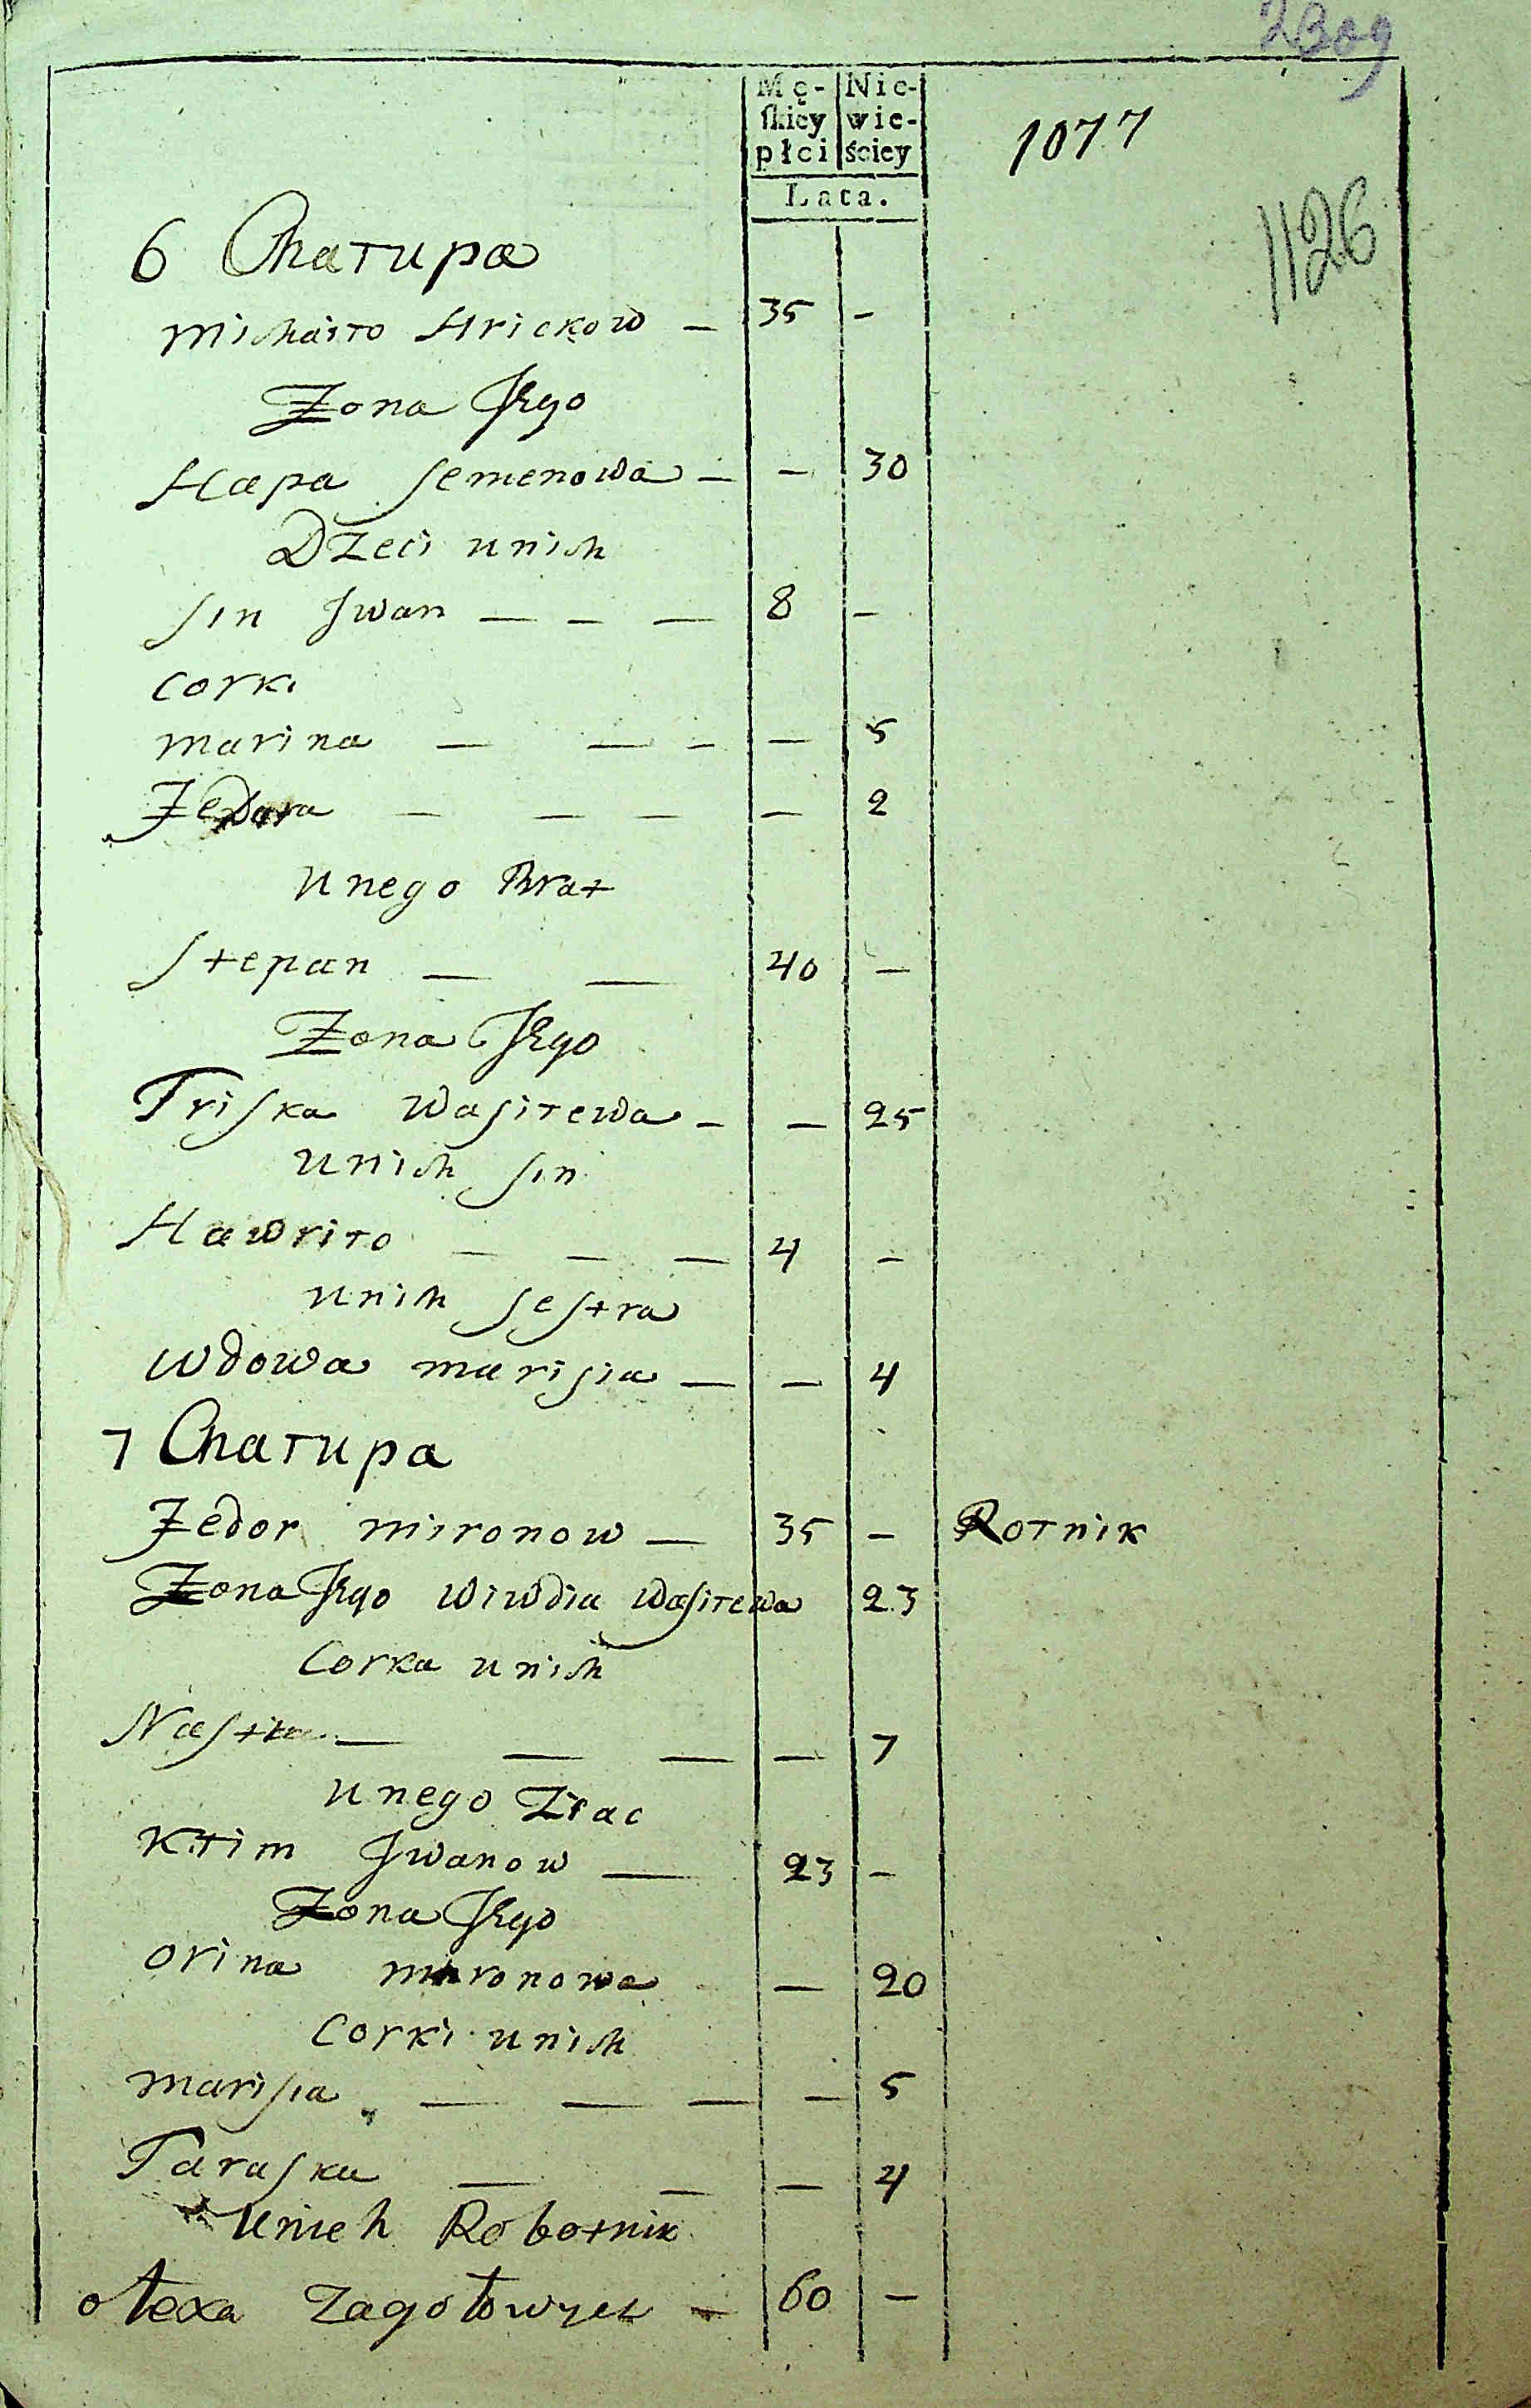 2309
Mę- Nie-
skiey wie-
płci ściey
1077
Lata.
1126
6 Chałupa
Michaiło Hrickow — 35 —
Żona Jego
Hapa Semenowa — — 30
Dzeci unich
Sin Iwan — — — 8 —
Corki
Marina — — — — 5
Fedora — — — — 2
unego Brat
Stepan — — 40 —
Żona Jego
Priska Wasilewa — — 25
unich Sin
Hawriło — — — 4 —
unich Sestra
Wdowa Marisia — — 4
7 Chałupa
Fedor Mironow — 35 — Rolnik
Żona Jego Wiwdia Wasilewa 23
Corka unich
Nastia — — — — 7
unego Ziac
Klim Iwanow — 23 —
Żona Jego
Orina Mironowa — 20
Corki unich
Marisia — — — — 5
Paraska — — — 4
unich Robotnik
Olexa — 60 —